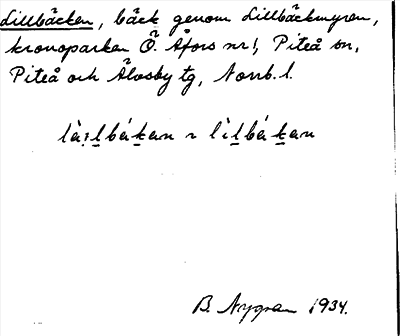 Lillbäcken, bäck genom Lillbäckmyren,
kronoparken Ö. Åfors nr 1, Piteå sn,
Piteå och Älvsby tg, Norrb. l.
B. Nygren 1934.